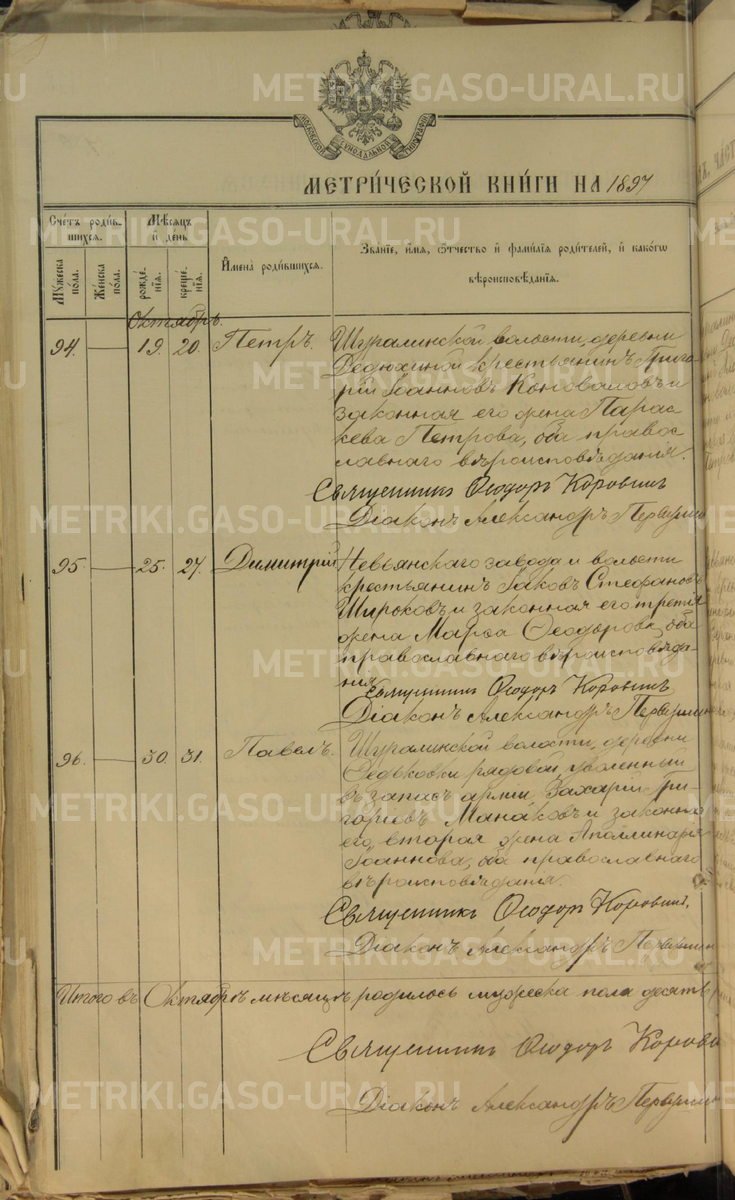 METRIKI.GASO-URAL.RU
МОСКОВСКОЙ СѴНОДАЛЬНОЙ ТИПОГРАФІИ
МЕТРИ́ЧЕСКОЙ КНИ́ГИ НА 1897
Сче́тъ роди́в-
шихся.
Мѣ́сяцъ
и҆ де́нь
И҆мена̀ роди́вшихся.
Зва́нїе, и҆́мя, ѻ҆́тчество и҆ фами́лїя роди́телей, и҆ како́гѡ
вѣроисповѣ́данїя.
Му́жеска
по́ла.
Же́нска
по́ла.
рожде́-
нїя.
креще́-
нїя.
Октябрь.
94. 19. 20. Петръ. Шуралинской волости, деревни
Дедюхиной крестьянинъ Григо-
рій Іоанновъ Коноваловъ и
законная его жена Парас-
кева Петрова, оба правос-
лавнаго вѣроисповѣданія.
Священникъ Ѳеодоръ Коровинъ
Діаконъ Александръ
95. 25. 27. Димитрій Невьянскаго завода и волости
крестьянинъ Іаковъ Стефановъ
Ширыковъ и законная его третія
жена Марѳа Ѳеодорова, оба
православнаго вѣроисповѣда-
нія.
Священникъ Ѳеодоръ Коровинъ
Діаконъ Александръ
96. 30. 31. Павелъ. Шуралинской волости, деревни
Ѳедьковки рядовой, уволенный
въ запасъ арміи, Захарій Гри-
горьевъ Манаковъ и законная
его вторая жена Аполлинарія
Іоаннова, оба православнаго
вѣроисповѣданія.
Священникъ Ѳеодоръ Коровинъ,
Діаконъ Александръ
Итого въ Октябрѣ мѣсяцѣ родилось мужеска пола десять
Священникъ Ѳеодоръ Корови
Діаконъ Александръ